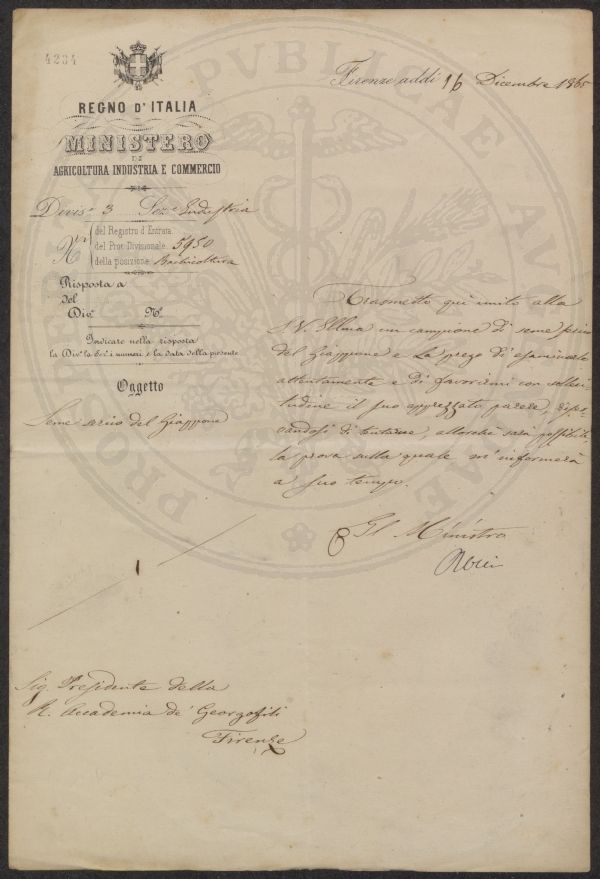 4234
Firenze addì 16 Dicembre 1865
REGNO D'ITALIA
MINISTERO
DI
AGRICOLTURA INDUSTRIA E COMMERCIO
Divis.e 3 Sez.e Industria
N.ri
del Registro d'Entrata
del Prot. Divisionale 5950
della posizione Bachicoltura
Risposta a
del
Div.e N.o
Indicare nella risposta
la Div.e la Sez.e i numeri e la data della presente
Oggetto
Seme serico del Giappone
Trasmetto qui unito alla
S.V. Illma un campione di seme
del Giappone e La prego di esaminarlo
attentamente e di favorirmi con solleci-
tudine il suo apprezzato parere, riser-
vandosi di tentarne, allorchè sarà possibile
la prova sulla quale m'informerà
a suo tempo.
Il Ministro
Sig. Presidente della
R. Accademia de' Georgofili
Firenze
PUBLICAE